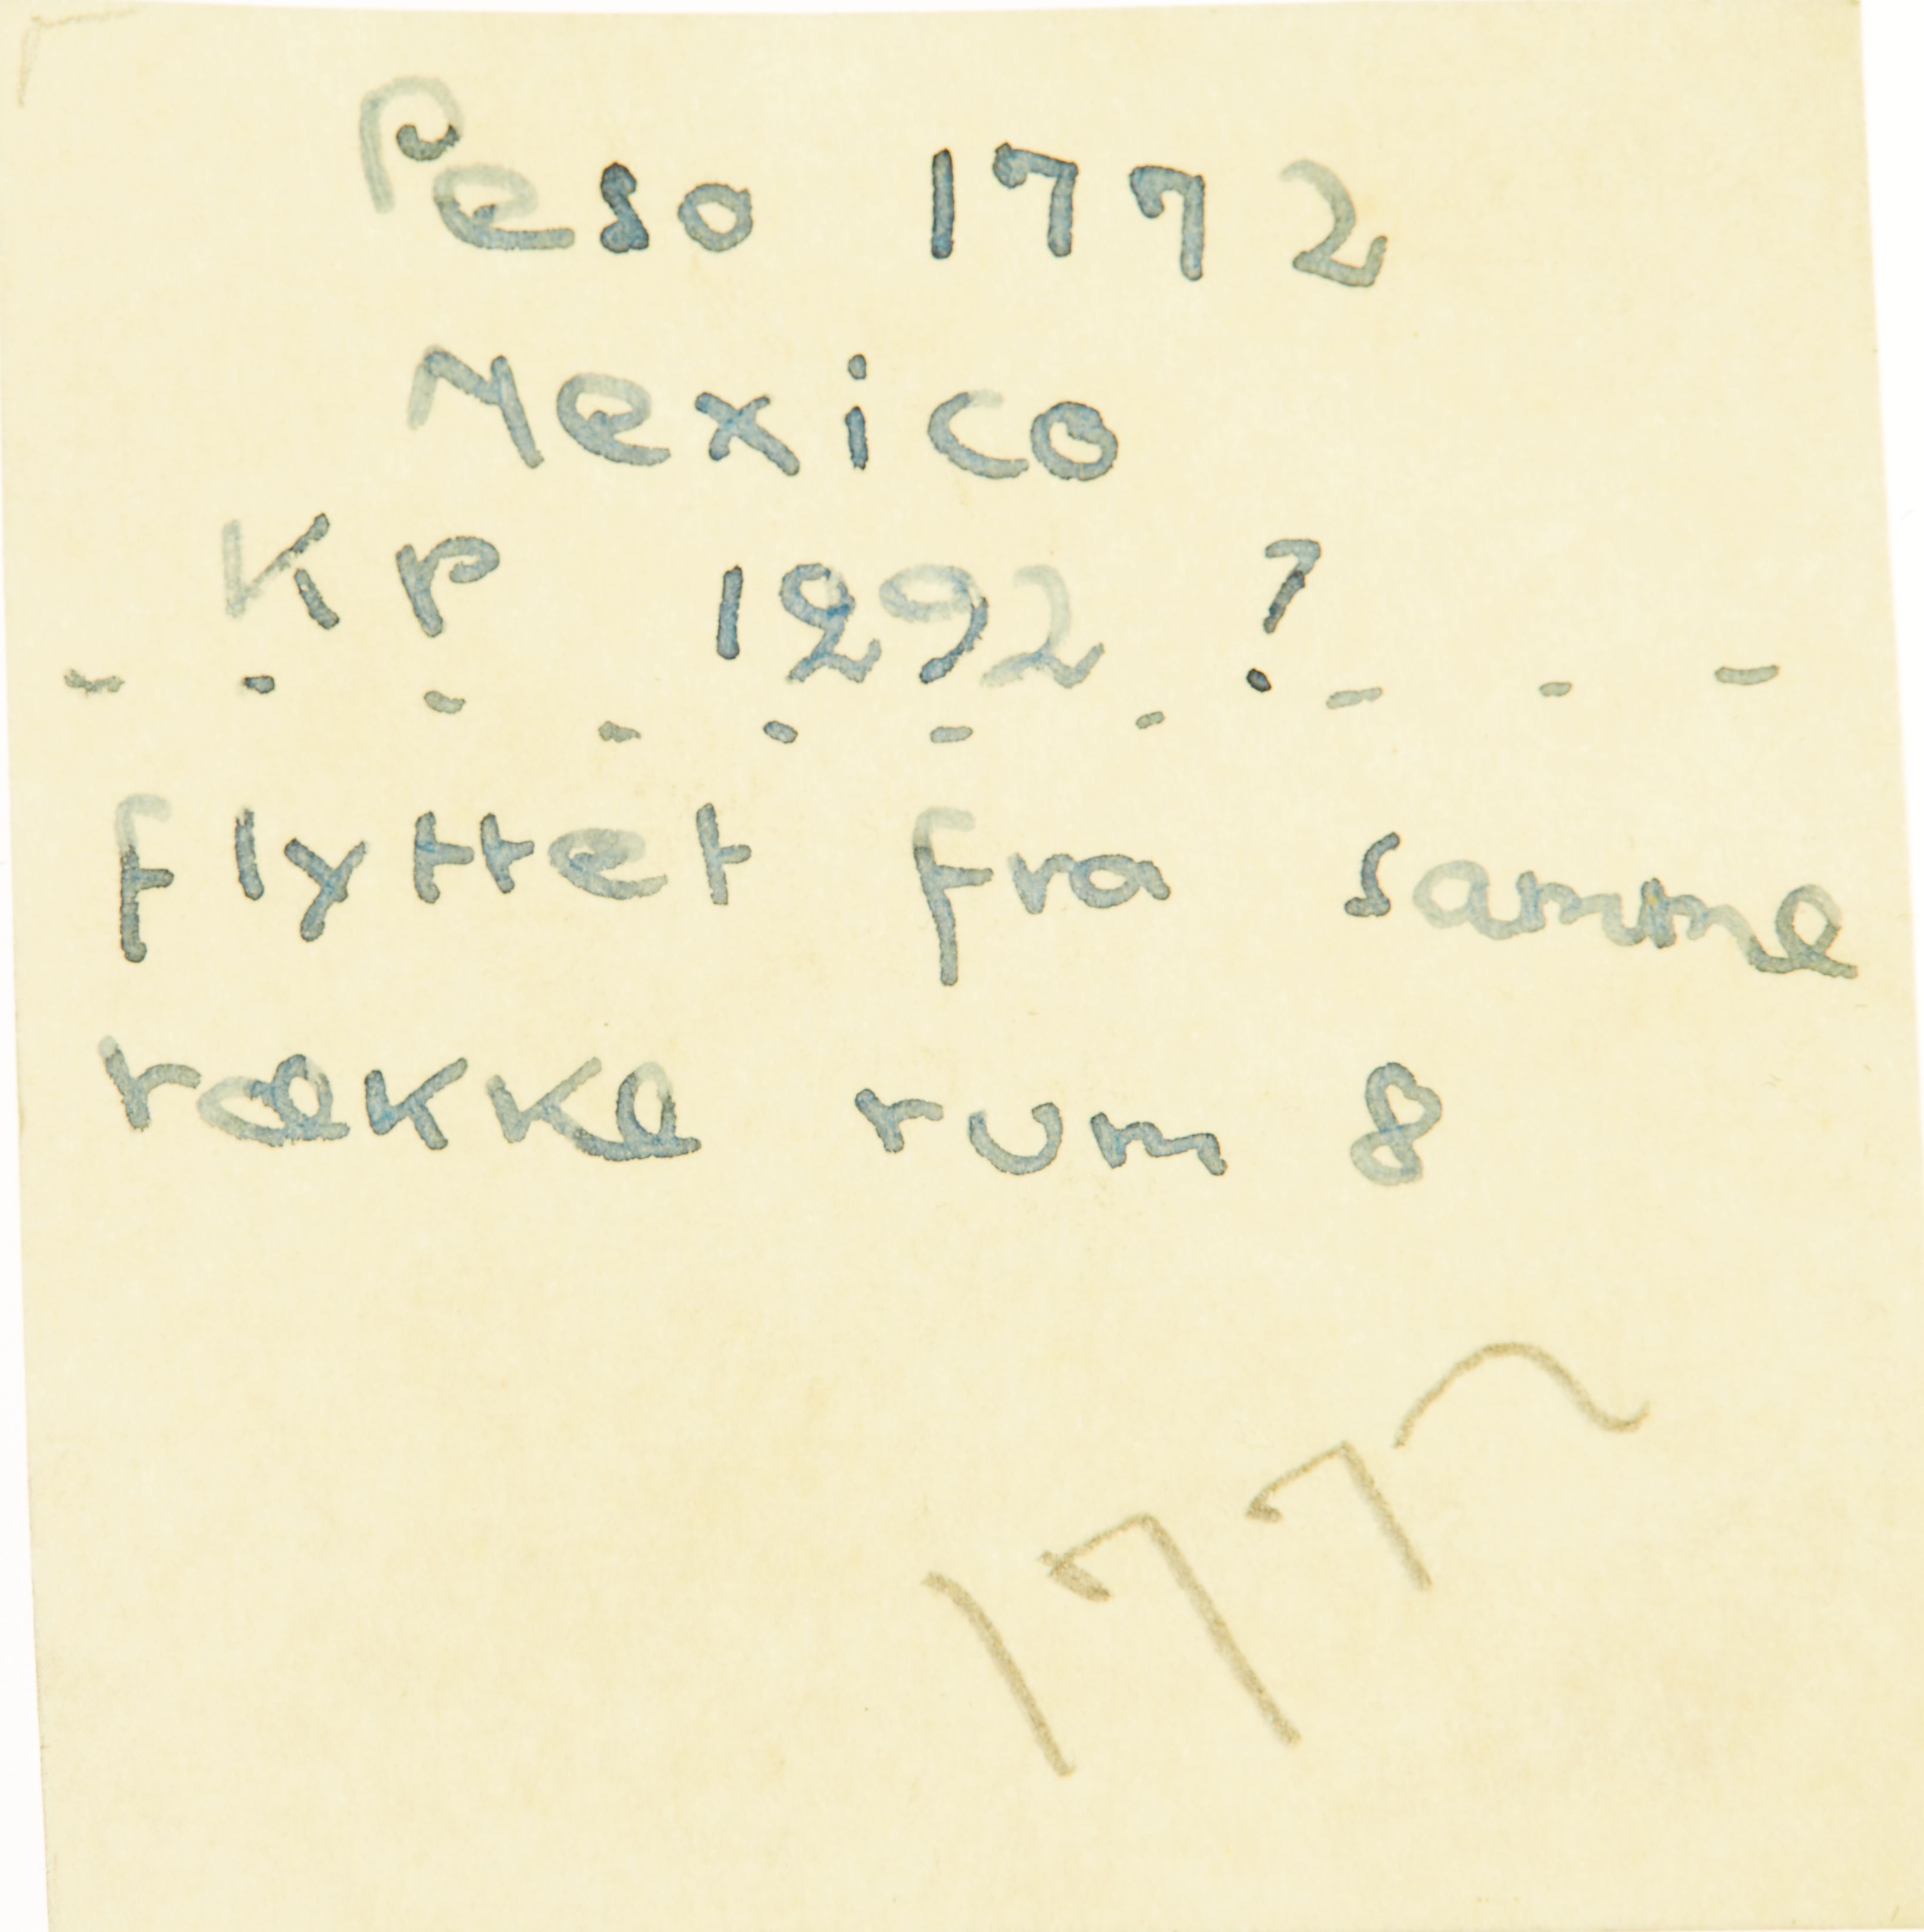 Peso 1772
Mexico
KP 1292 ?
- - - - - - - - - -
flyttet fra samme
række rum 8
1772